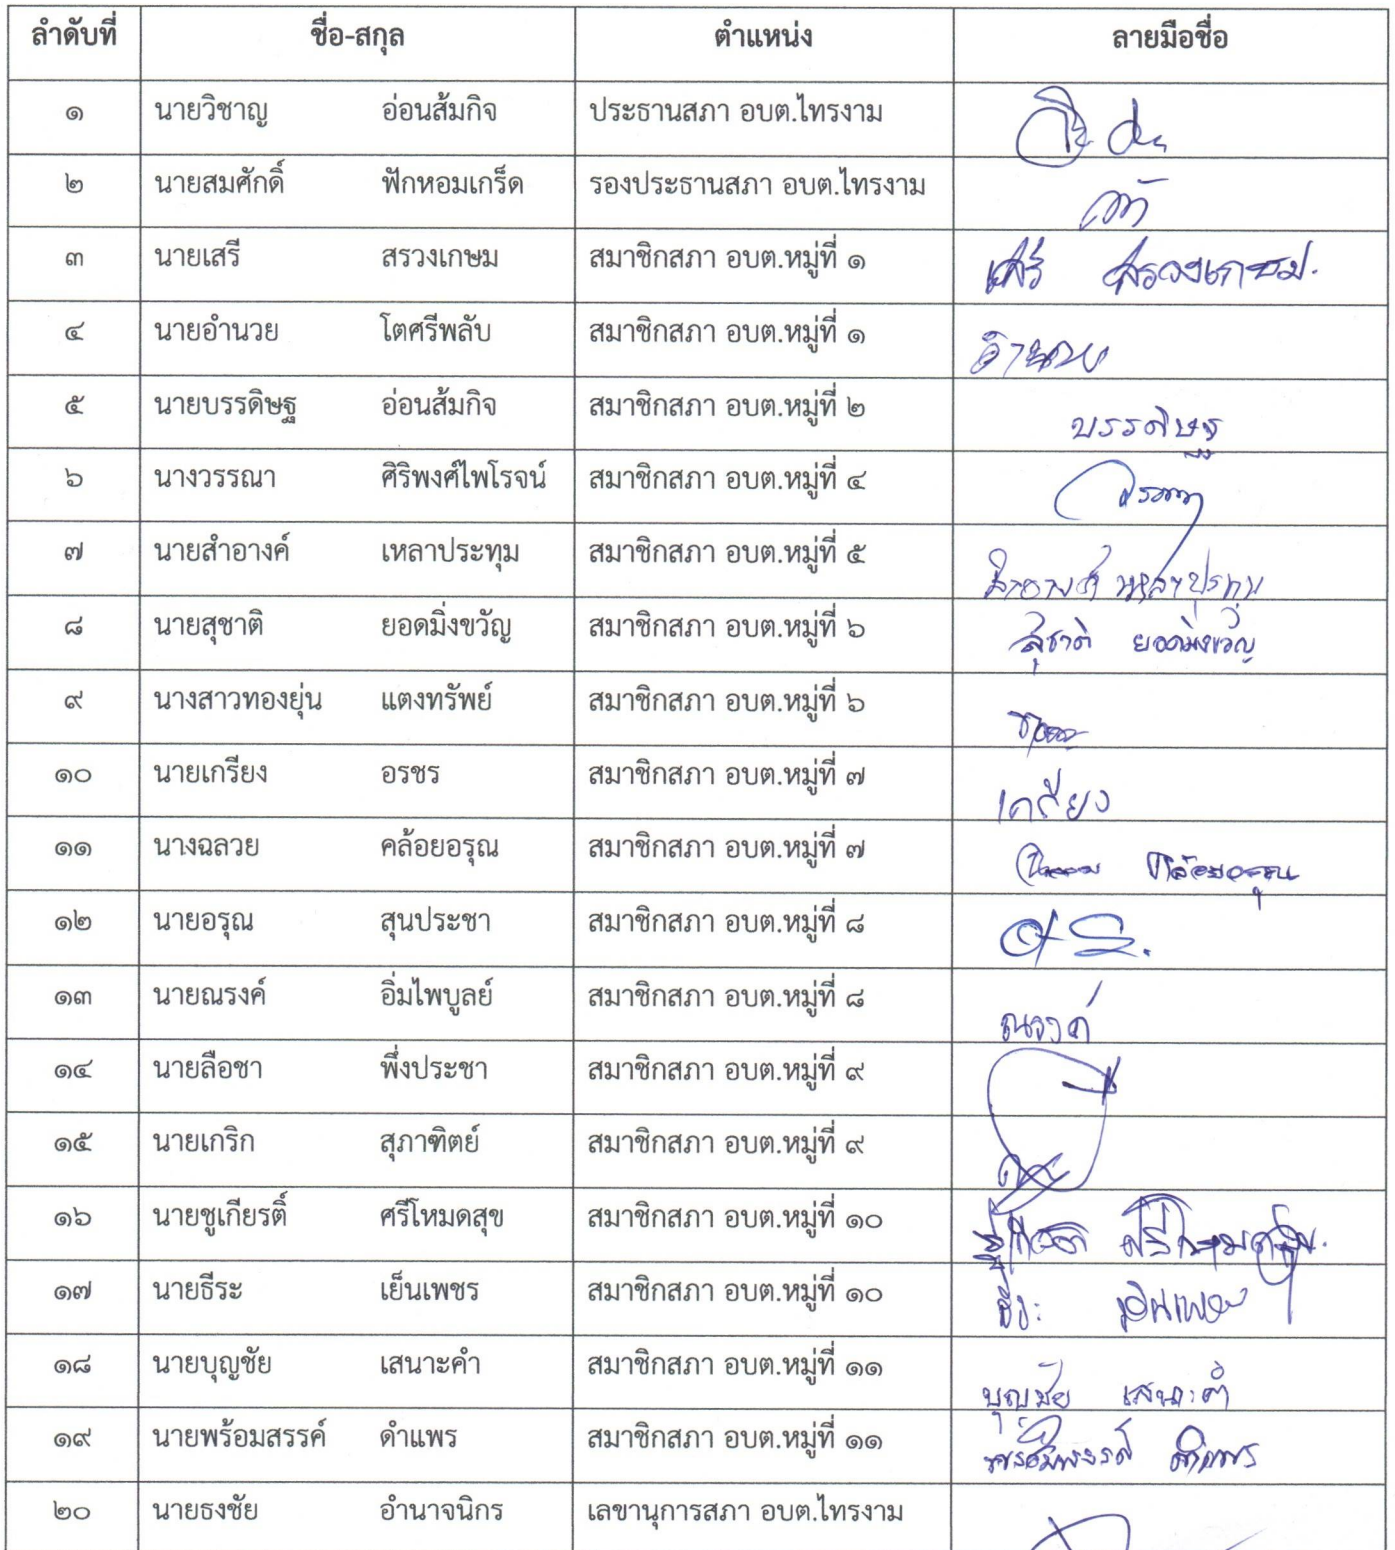 ลำดับที่ ชื่อ-สกุล ตำแหน่ง ลายมือชื่อ
๑ นายวิชาญ อ่อนส้มกิจ ประธานสภา อบต.ไทรงาม
๒ นายสมศักดิ์ ฟักหอมเกร็ด รองประธานสภา อบต.ไทรงาม
๓ นายเสรี สรวงเกษม สมาชิกสภา อบต.หมู่ที่ ๑ เสรี สรวงเกษม.
๔ นายอำนวย โตศรีพลับ สมาชิกสภา อบต.หมู่ที่ ๑ อำนวย
๕ นายบรรดิษฐ อ่อนส้มกิจ สมาชิกสภา อบต.หมู่ที่ ๒ บรรดิษฐ
๖ นางวรรณา ศิริพงศ์ไพโรจน์ สมาชิกสภา อบต.หมู่ที่ ๔
๗ นายสำอางค์ เหลาประทุม สมาชิกสภา อบต.หมู่ที่ ๕ สำอางค์ เหลาประทุม
๘ นายสุชาติ ยอดมิ่งขวัญ สมาชิกสภา อบต.หมู่ที่ ๖ สุชาติ ยอดมิ่งขวัญ
๙ นางสาวทองยุ่น แตงทรัพย์ สมาชิกสภา อบต.หมู่ที่ ๖
๑๐ นายเกรียง อรชร สมาชิกสภา อบต.หมู่ที่ ๗ เกรียง
๑๑ นางฉลวย คล้อยอรุณ สมาชิกสภา อบต.หมู่ที่ ๗ คล้อยอรุณ
๑๒ นายอรุณ สุนประชา สมาชิกสภา อบต.หมู่ที่ ๘
๑๓ นายณรงค์ อิ่มไพบูลย์ สมาชิกสภา อบต.หมู่ที่ ๘ ณรงค์
๑๔ นายลือชา พึ่งประชา สมาชิกสภา อบต.หมู่ที่ ๙
๑๕ นายเกริก สุภาฑิตย์ สมาชิกสภา อบต.หมู่ที่ ๙
๑๖ นายชูเกียรติ์ ศรีโหมดสุข สมาชิกสภา อบต.หมู่ที่ ๑๐ ศรีโหมดสุข.
๑๗ นายธีระ เย็นเพชร สมาชิกสภา อบต.หมู่ที่ ๑๐ ธีระ เย็นเพชร
๑๘ นายบุญชัย เสนาะคำ สมาชิกสภา อบต.หมู่ที่ ๑๑ บุญชัย เสนาะคำ
๑๙ นายพร้อมสรรค์ ดำแพร สมาชิกสภา อบต.หมู่ที่ ๑๑ พร้อมสรรค์ ดำแพร
๒๐ นายธงชัย อำนาจนิกร เลขานุการสภา อบต.ไทรงาม